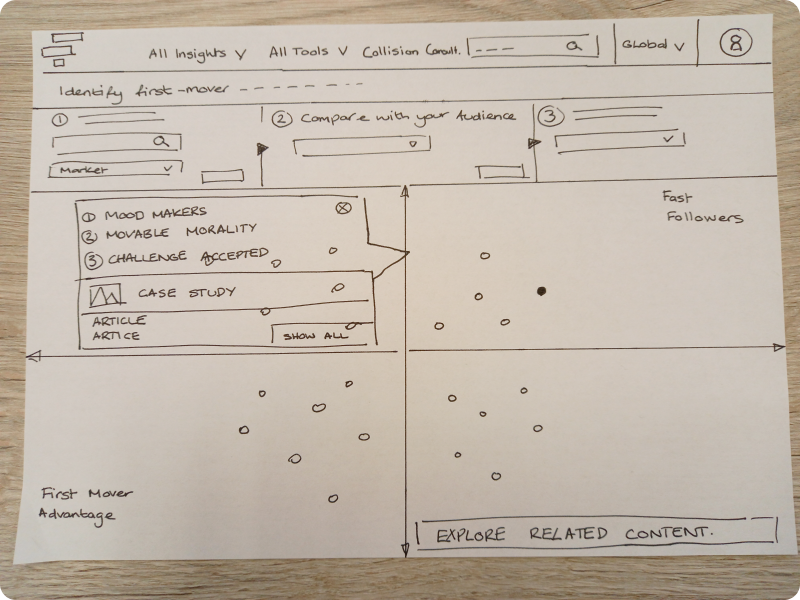 All Insights v All Tools v Collision Consult. Global v
Identify first-mover
1
2 Compare with your Audience
3
Market v
1 MOOD MAKERS
2 MOVABLE MORALITY
3 CHALLENGE ACCEPTED
CASE STUDY
ARTICLE
ARTICE
SHOW ALL
Fast
Followers
First Mover
Advantage
EXPLORE RELATED CONTENT.